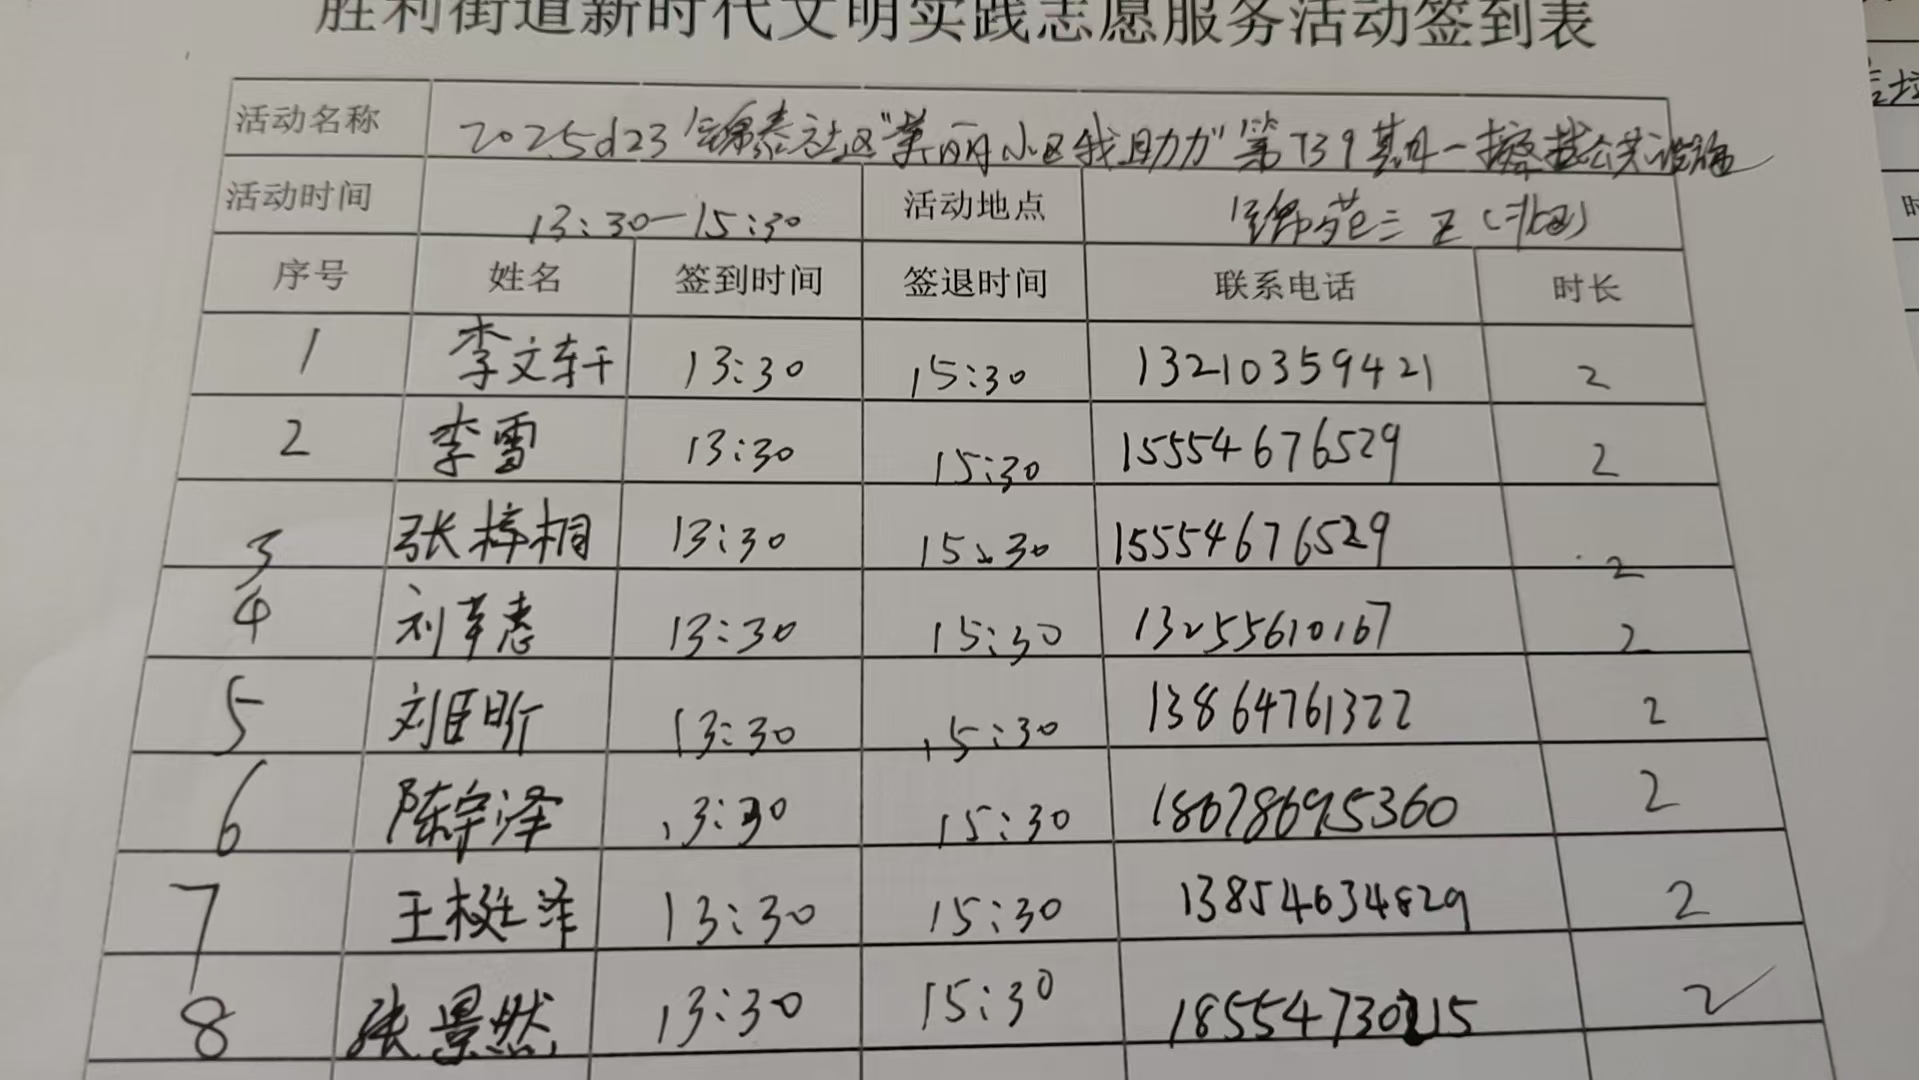 胜利街道新时代文明实践志愿服务活动签到表
活动名称 2025d23锦泰社区"美丽小区我助力"第739期—擦拭公共设施
活动时间 13:30—15:30 活动地点 锦苑三区(北区)
序号 姓名 签到时间 签退时间 联系电话 时长
1 李文轩 13:30 15:30 13210359421 2
2 李雪 13:30 15:30 15554676529 2
3 张梓桐 13:30 15:30 15554676529 2
4 刘 13:30 15:30 13255610167 2
5 刘臣昕 13:30 15:30 13864761322 2
6 陈宇泽 13:30 15:30 18678695360 2
7 王梃泽 13:30 15:30 13854634829 2
8 张景然 13:30 15:30 18554730215 2